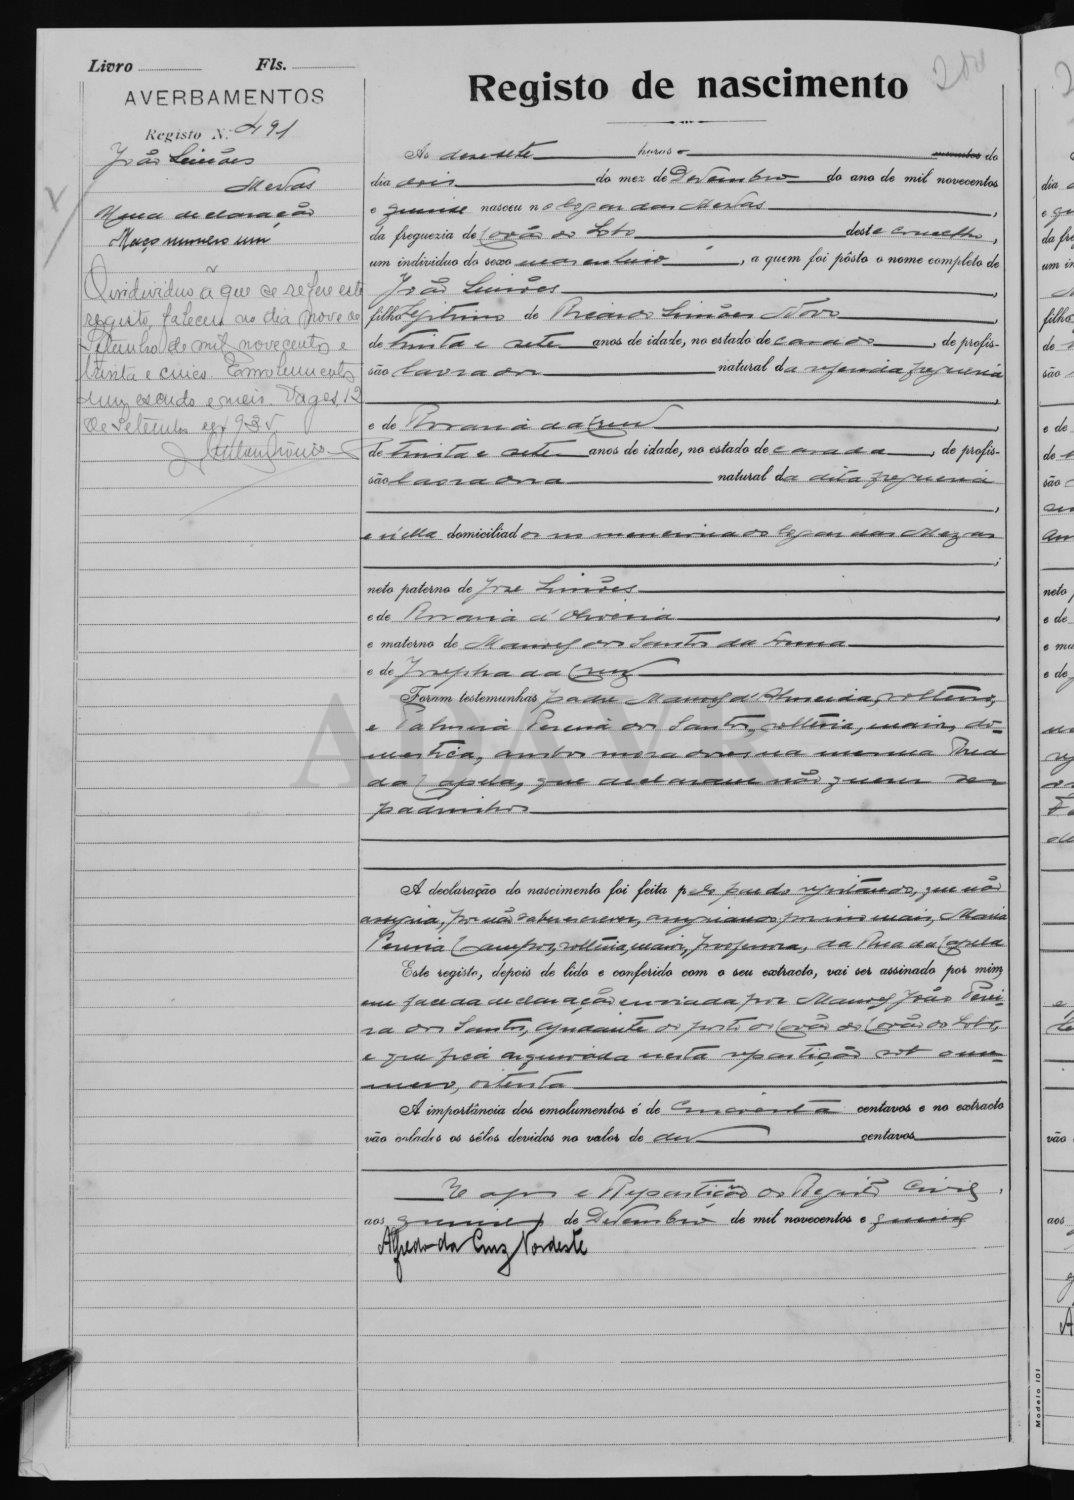 Livro Fls.
AVERBAMENTOS
Registo N.º 491
João Simões
Mesas
Uma declaração
Março numero um
O individuo a que se refere este
registo, faleceu no dia nove de
Setembro de mil novecentos e
trinta e cinco. Emolumentos
um escudo e meio. Vagos, 12
de Setembro de 1935
Registo de nascimento
Ás dezesete horas e minutos do
dia dois do mez de Dezembro do ano de mil novecentos
e quinze nasceu no logar das Mesas
da freguezia de Covão do Lobo deste concelho,
um individuo do sexo masculino, a quem foi pôsto o nome completo de
João Simões
filho legitimo de Ricardo Simões Novo
de trinta e sete anos de idade, no estado de casado, de profis-
são lavrador natural da referida freguesia
e de Rosaria da Cruz
de trinta e sete anos de idade, no estado de casada, de profis-
são lavradora natural da dita freguesia
e n'ella domiciliados no mencionado logar das Mezas
neto paterno de José Simões
e de Rosaria d'Oliveira
e materno de Manoel dos Santos da
e de Josepha da Cruz
Foram testemunhas Padre Manoel d'Almeida, solteiro,
e Palmira Pereira dos Santos, solteira, maior, do-
mestica, ambos moradores na mesma Rua
da Capela, que declararam não querer ser
padrinhos
A declaração do nascimento foi feita pelo pae do registando, que não
assigna, por não saber escrever, assignando por mais, Maria
Pereira Campos, solteira, maior, professora, da Rua da Capela
Este registo, depois de lido e conferido com o seu extracto, vai ser assinado por mim,
em face da declaração enviada por Manoel João Perei-
ra dos Santos, ajudante do posto do Covão do Lobo,
e que fica arquivada nesta repartição sob o nu-
mero, oitenta
A importância dos emolumentos é de cincoenta centavos e no extracto
vão colados os sêlos devidos no valor de dez centavos
Vagos e Repartição do Registo Civil,
aos quinze de Dezembro de mil novecentos e quinze
Alfredo da Cruz Nordeste
Modelo 101